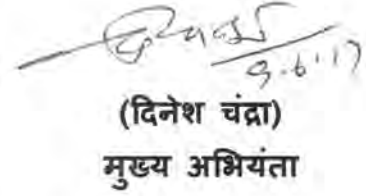 9.6.17
(दिनेश चंद्रा)
मुख्य अभियंता